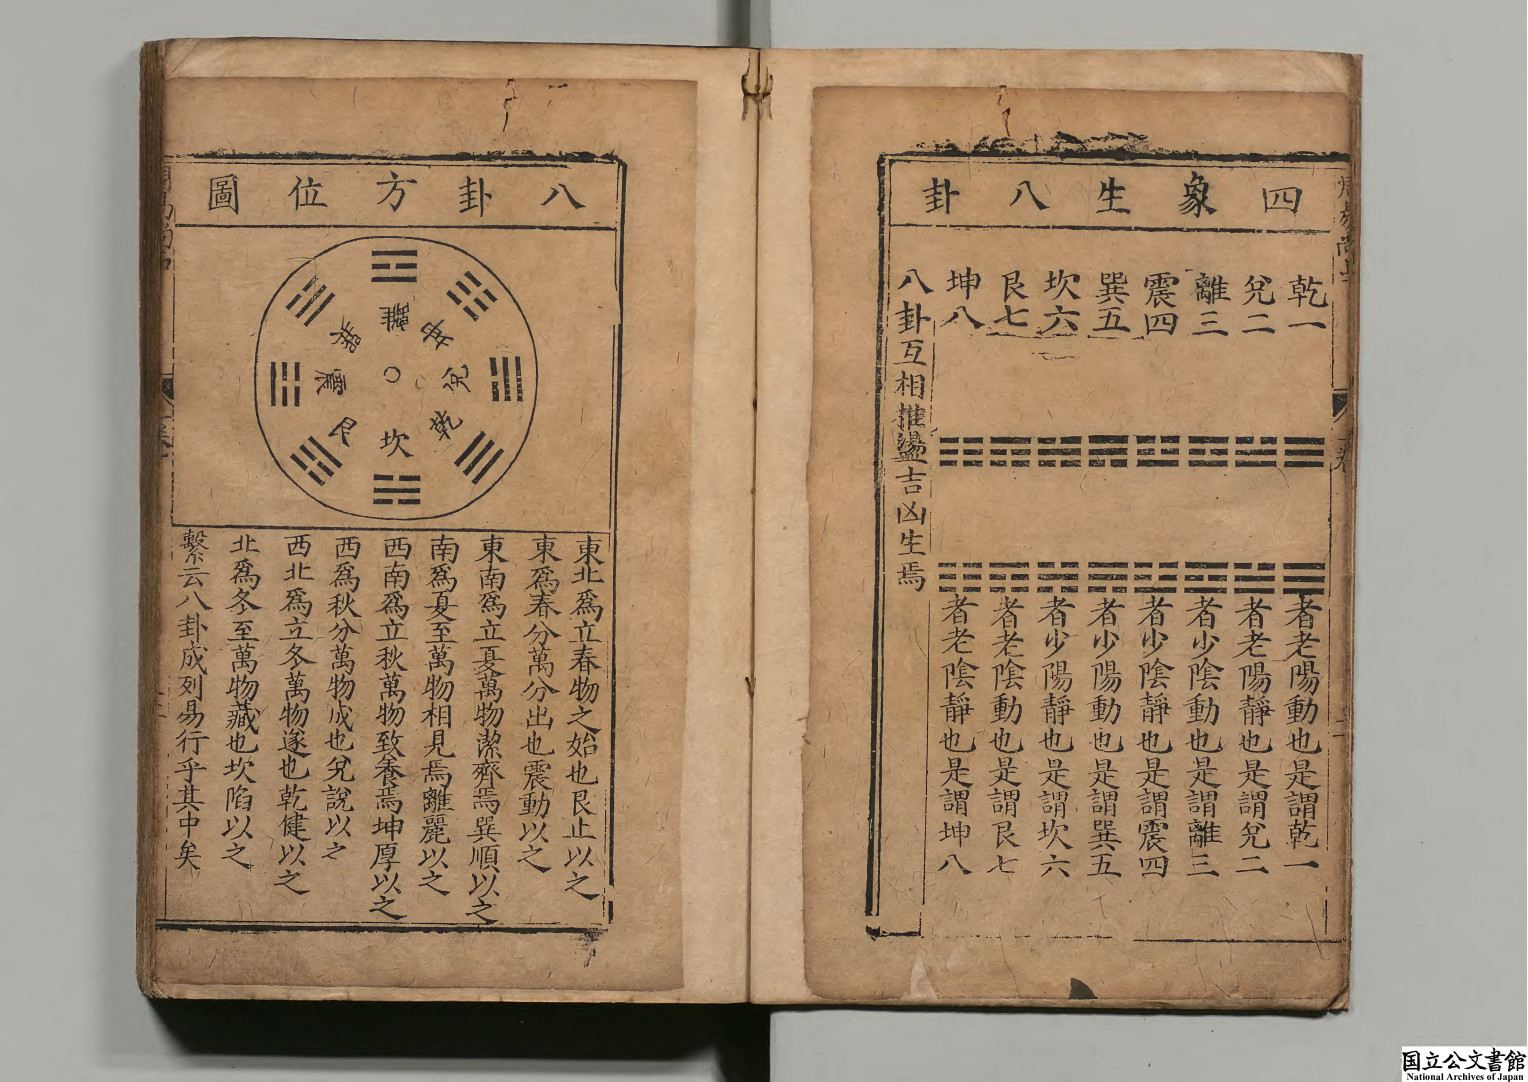 四象生八卦
乾一
兊二
離三
震四
巽五
坎六
艮七
坤八
者老陽動也是謂乾一
者老陽靜也是謂兊二
者少陰動也是謂離三
者少陰靜也是謂震四
者少陽動也是謂巽五
者少陽靜也是謂坎六
者老陰動也是謂艮七
者老陰靜也是謂坤八
八卦互相推盪吉凶生焉
八卦方位圖
離
坤
兊
乾
坎
艮
震
巽
東北爲立春物之始也艮止以之
東爲春分萬分出也震動以之
東南爲立夏萬物潔齊焉巽順以之
南爲夏至萬物相見焉離麗以之
西南爲立秋萬物致養焉坤厚以之
西爲秋分萬物成也兊說以之
西北爲立冬萬物遂也乾健以之
北爲冬至萬物藏也坎陷以之
繫云八卦成列易行乎其中矣
国立公文書館
National Archives of Japan